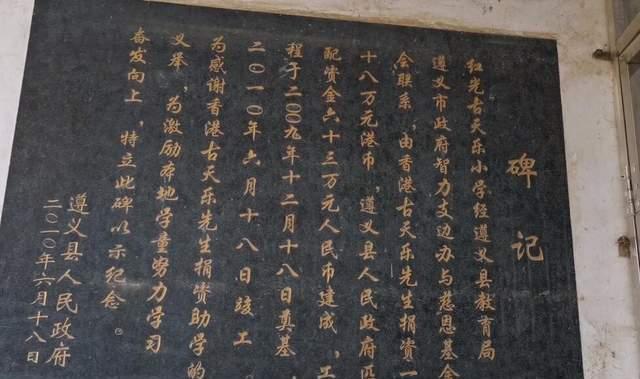 碑记
红光古天乐小学经遵义县教育局
遵义市政府智力支边办与慈恩基金
会联系，由香港古天乐先生捐资一
十八万元港币，遵义县人民政府匹
配资金六十三万元人民币建成，工
程于二〇〇九年十二月十八日奠基，
二〇一〇年六月十八日竣工。
为感谢香港古天乐先生捐资助学的
义举，为激励本地学童努力学习
奋发向上，特立此碑以示纪念。
遵义县人民政府
二〇一〇年六月十八日